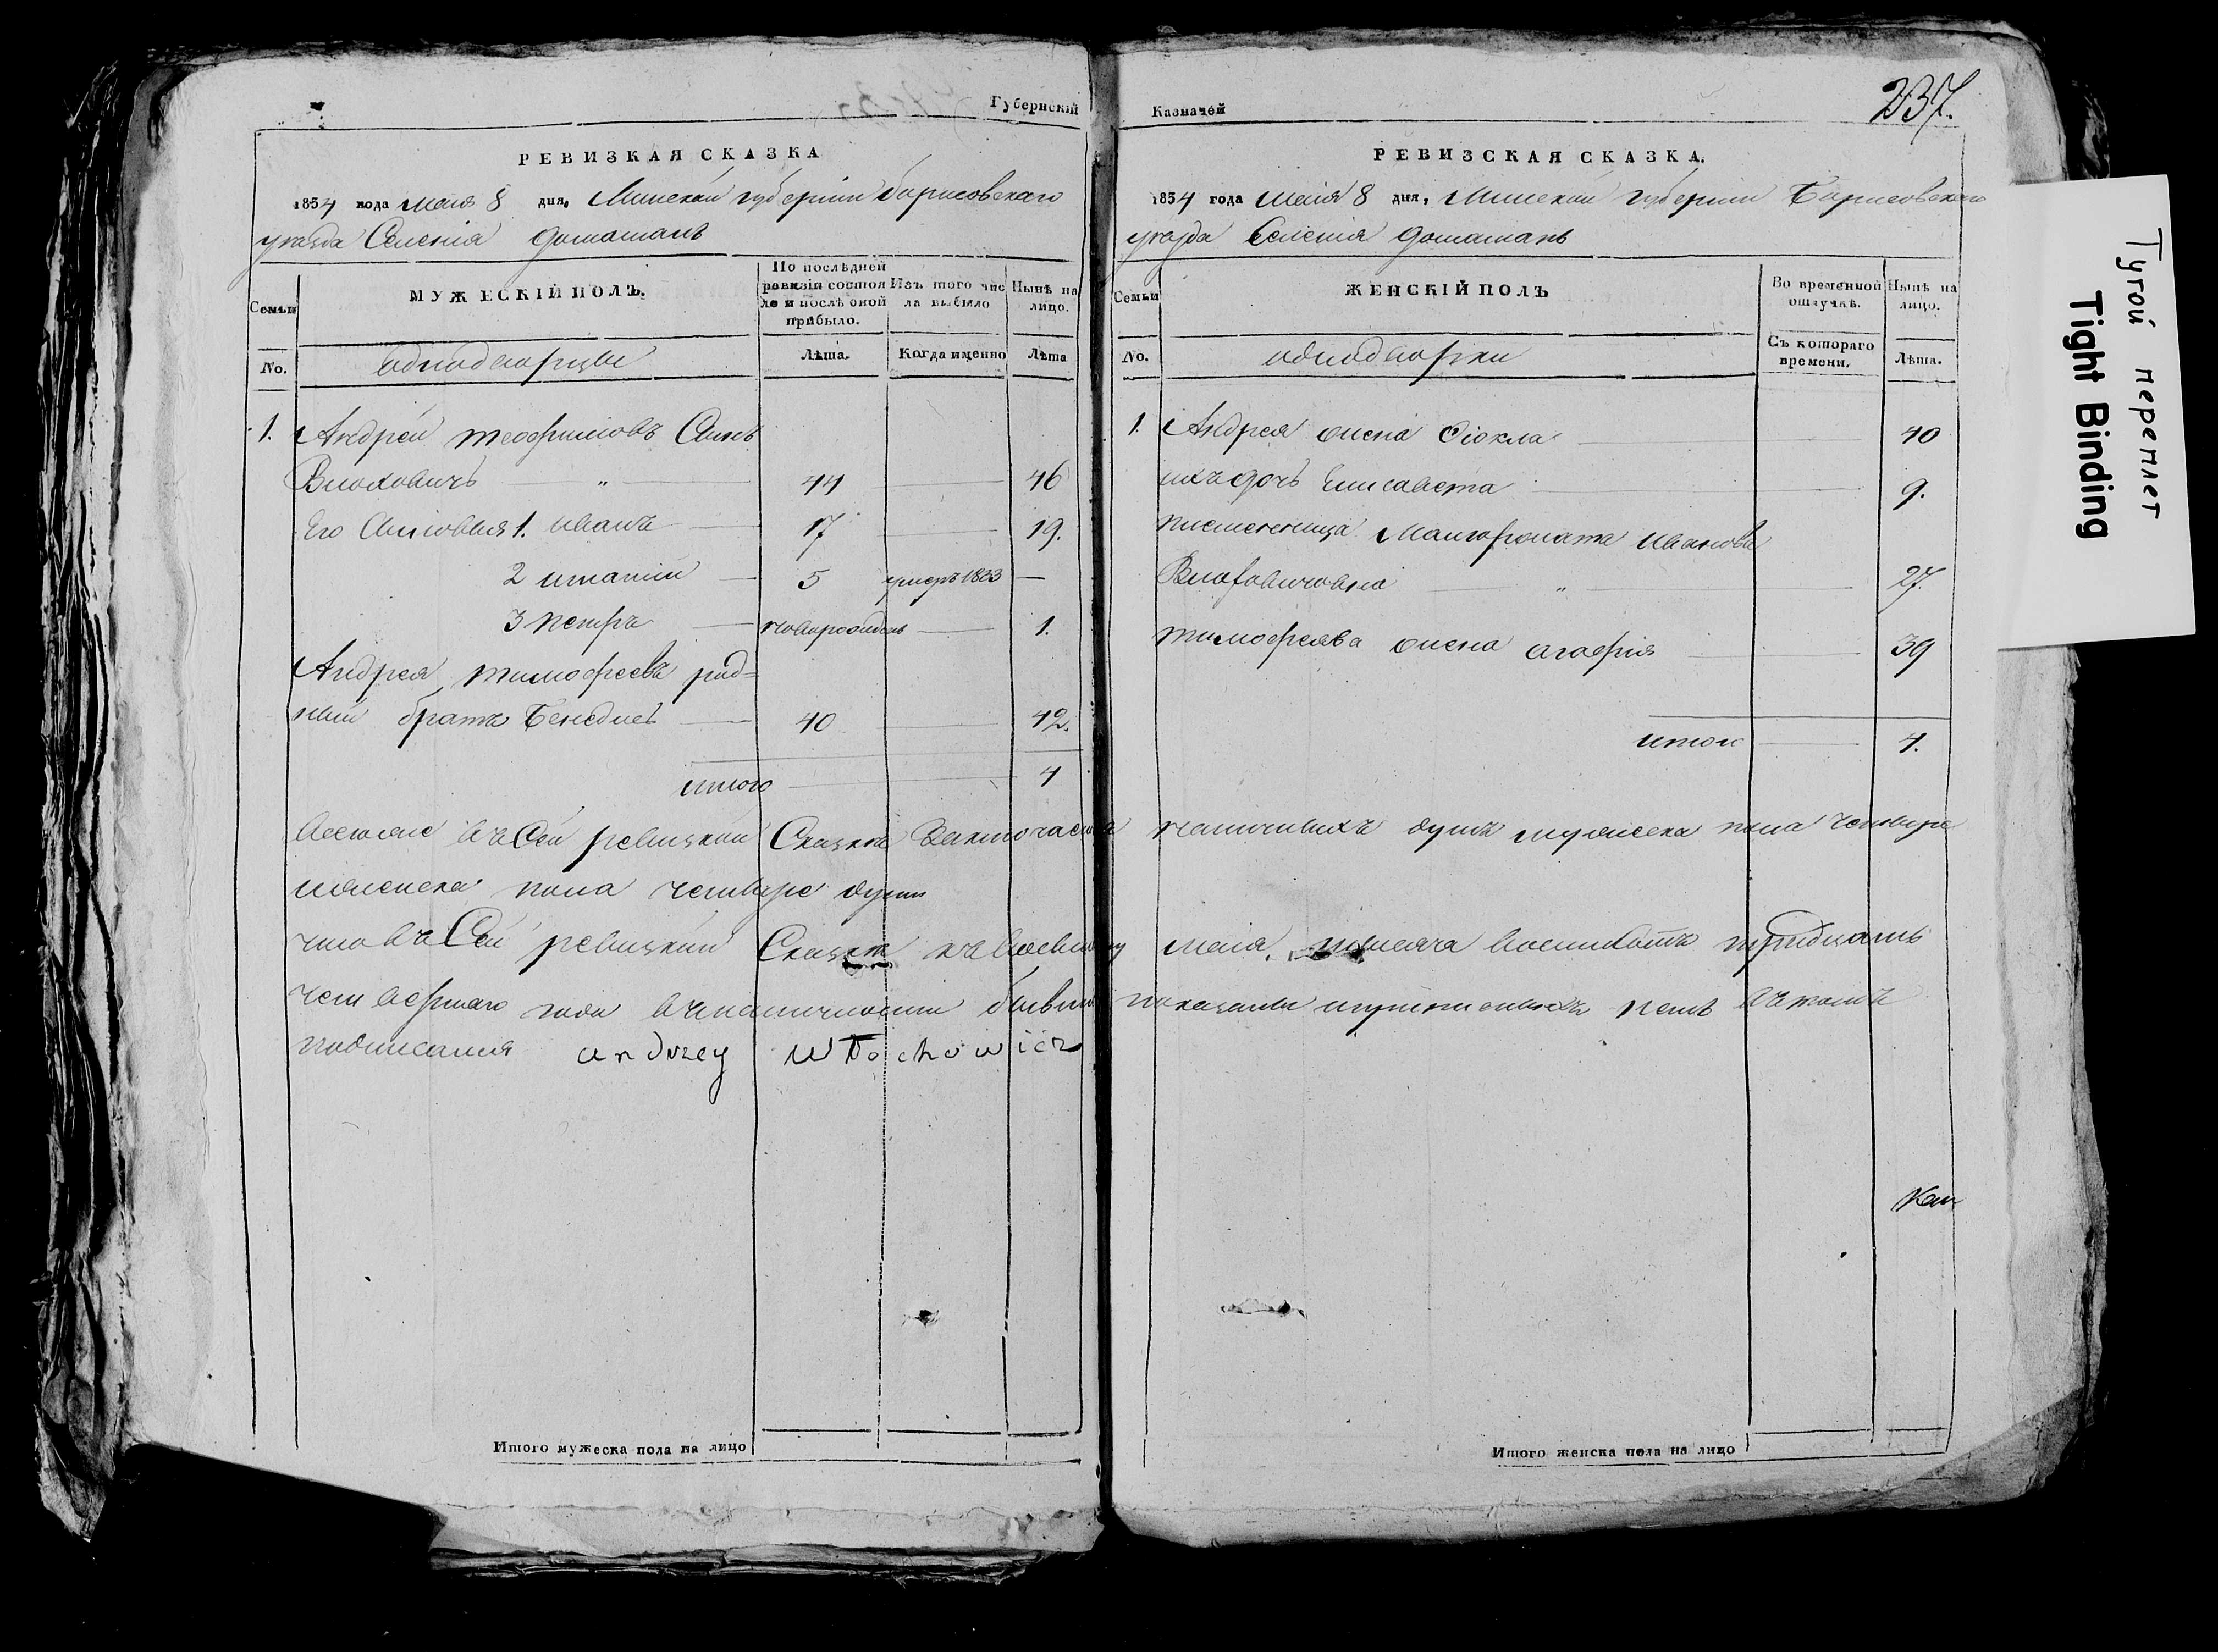 Губернскій
РЕВИЗКАЯ СКАЗКА
1854 года маія 8 дня, Минской губерніи борисовскаго
уезда Селенія Домашань
Семьи
МУЖЕСКІЙ ПОЛЪ.
По послѣдней ревизіи состояло и послѣ оной прибыло.
Изъ того числа выбыло
Нынѣ на лицо.
No.
однодворцы
Лѣта.
Когда именно
Лѣта
1. Андрей теофиловъ Сынъ
Влоховичъ — " — 44 — 46
Его Сыновья 1. иванъ — 17 — 19.
2 игнатій — 5 умеръ 1853 —
3 петръ — новорожденъ — 1.
Андрея тимофеевъ род=
ный братъ Бенедиктъ — 40 — 42.
итого — 4
Казначей
237.
РЕВИЗСКАЯ СКАЗКА.
1854 года маія 8 дня, Минской губерніи Борисовскаго
уезда Селенія Домашань
Семьи
ЖЕНСКІЙ ПОЛЪ
Во временной отлучкѣ.
Нынѣ на лицо.
No.
однодворки
Съ котораго времени.
Лѣта.
1. Андрея жена Фіокла — 40
ихъ дочь Елисавета — 9.
племенница Иванова
Влоховичовна — " — 27.
тимофеява жена агафія — 39
итого — 4.
всего въ Сей ревизкой Сказкѣ наличныхъ душъ мужеска пола четыре
женска пола четыре души
что въ Сей ревизкой Сказкѣ маія тысяча восемьсотъ тридцать
четвертаго года въ наличности бывшіе показаны и прописныхъ нетъ въ томъ
подписался andrzey Włochowicz
Кан
Итого мужеска пола на лицо
Итого женска пола на лицо
Тугой переплет
Tight Binding